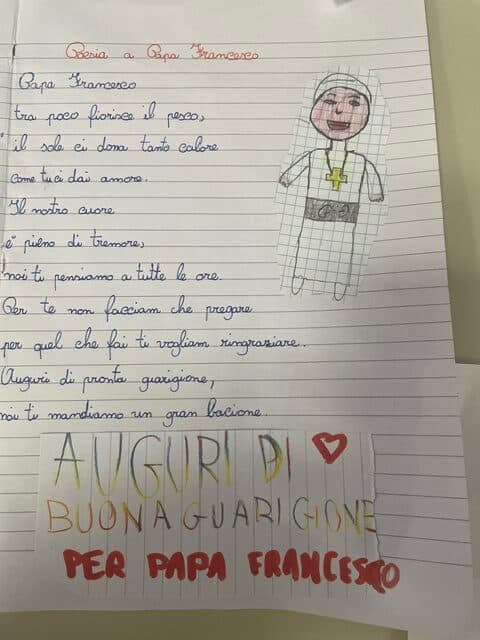 Poesia a Papa Francesco
Papa Francesco
tra poco fiorisce il pesco,
il sole ci dona tanto calore
come tu ci dai amore.
Il nostro cuore
è pieno di tremore,
noi ti pensiamo a tutte le ore.
Per te non facciam che pregare
per quel che fai ti vogliam ringraziare.
Auguri di pronta guarigione,
noi ti mandiamo un gran bacione.
AUGURI DI
BUONA GUARIGIONE
PER PAPA FRANCESCO